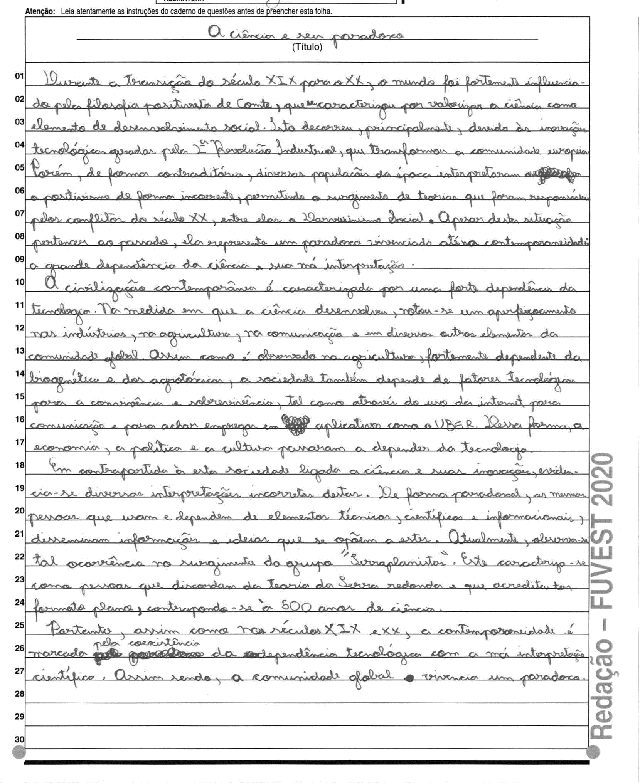 Atenção: Leia atentamente as instruções do caderno de questões antes de preencher esta folha.
A ciência e seu paradoxo
(Título)
01 Durante a transição do século XIX para o XX, o mundo foi fortemente influencia-
02 do pela filosofia positivista de Comte, que se caracterizou por valorizar a ciência como
03 elemento de desenvolvimento social. Isto decorreu, principalmente, devido às inovações
04 tecnológicas geradas pela 2ª Revolução Industrial, que transformou a comunidade europeia.
05 Porém, de forma contraditória, diversas populações da época interpretaram
06 o positivismo de forma incorreta, permitindo o surgimento de teorias que foram responsáveis
07 pelos conflitos do século XX, entre elas o Darwinismo Social. Apesar desta situação
08 pertencer ao passado, ela representa um paradoxo vivenciado até na contemporaneidade:
09 a grande dependência da ciência e sua má interpretação.
10 A civilização contemporânea é caracterizada por uma forte dependência da
11 tecnologia. Na medida em que a ciência desenvolveu, notou-se um aperfeiçoamento
12 nas indústrias, na agricultura, na comunicação e em diversos outros elementos da
13 comunidade global. Assim como é observado na agricultura, fortemente dependente da
14 biogenética e dos agrotóxicos, a sociedade também depende de fatores tecnológicos
15 para a convivência e sobrevivência, tal como através do uso da internet para
16 comunicação e para achar empregos em aplicativos como a UBER. Dessa forma, a
17 economia, a política e a cultura passaram a depender da tecnologia.
18 Em contrapartida à esta sociedade ligada a ciência e suas inovações, eviden-
19 cia-se diversas interpretações incorretas destas. De forma paradoxal, as mesmas
20 pessoas que usam e dependem de elementos técnicos, científicos e informacionais,
21 disseminam informações e ideias que se opõem a estes. Atualmente, observa-se
22 tal ocorrência no surgimento do grupo "Terraplanistas". Este caracteriza-se
23 como pessoas que discordam da teoria da Terra redonda e que acreditam no
24 formato plano, contrapondo-se à 500 anos de ciência.
25 Portanto, assim como nos séculos XIX e XX, a contemporaneidade é
pela coexistência
26 marcada da dependência tecnológica com a má interpretação
27 científica. Assim sendo, a comunidade global vivencia um paradoxo.
28
29
30
Redação – FUVEST 2020